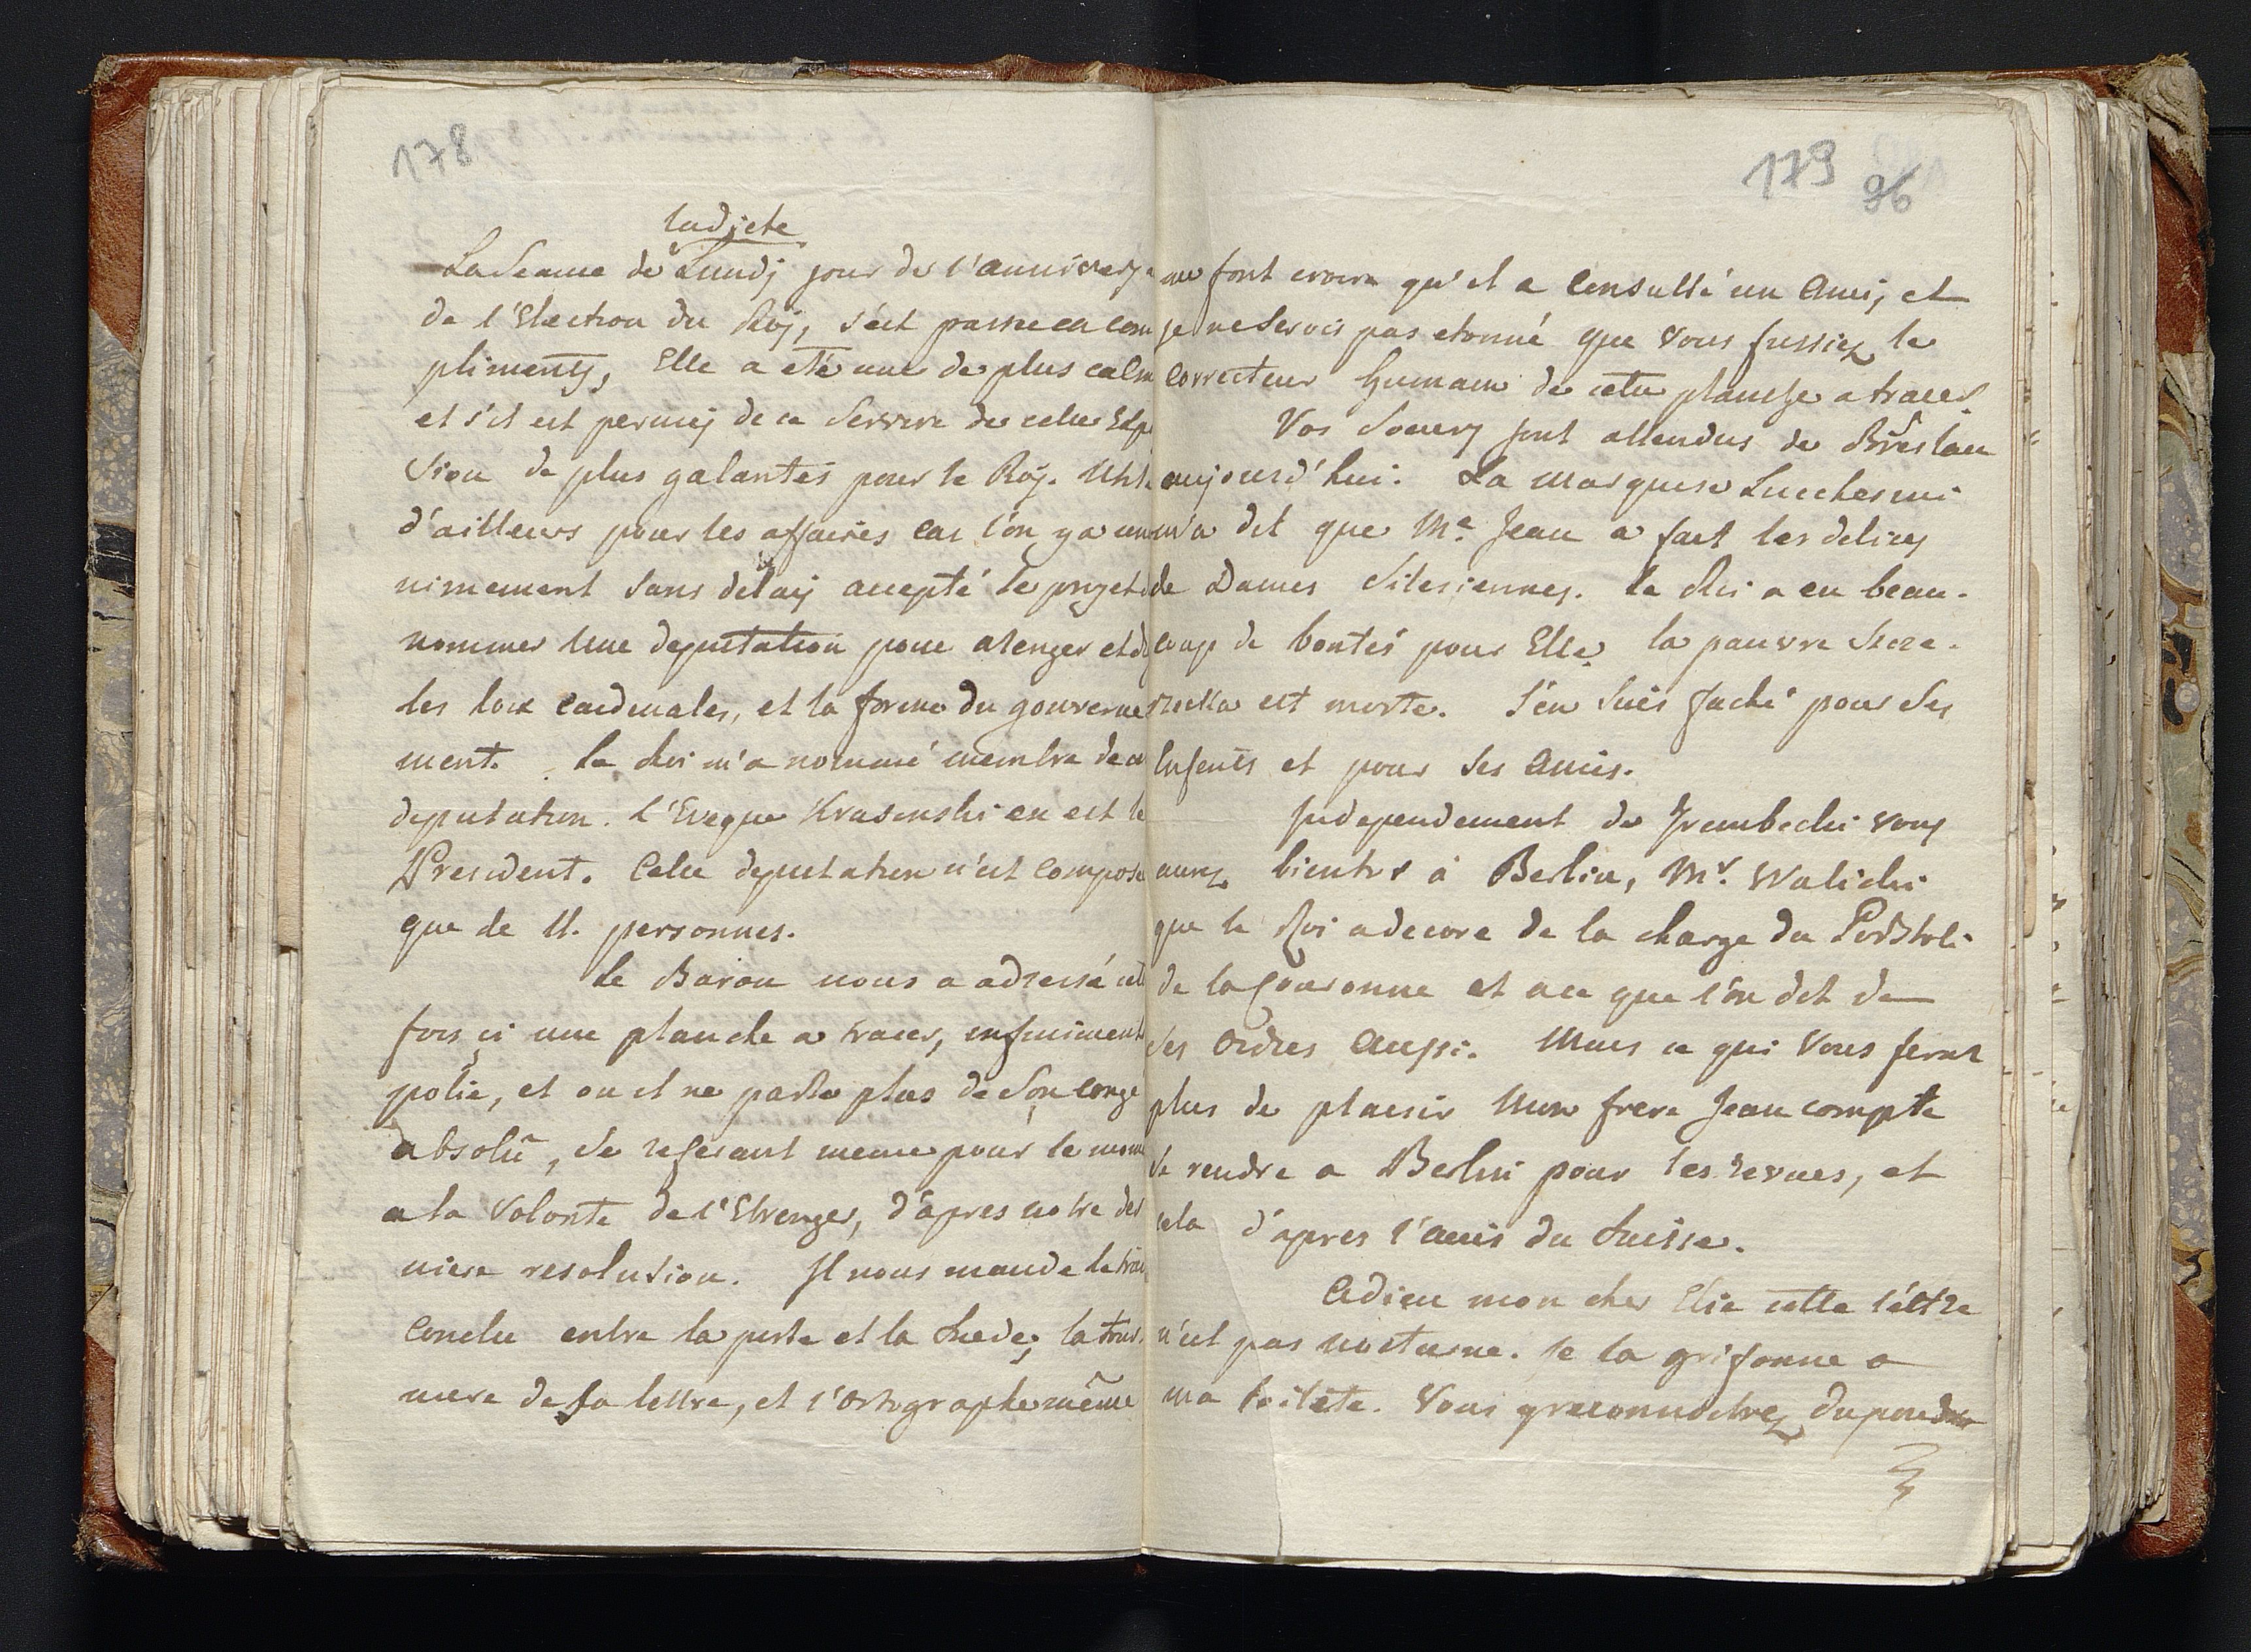 178
ladiete
La Seance de Lundj jour de l'annivers
de l'Election du Roj, s'est passée en com
pliments, Elle a été une de plus calm
et s'il est permis de ce servire de cette Exp
sion de plus galantes pour le Roj. Utile
d'ailleurs pour les affaires car l'on y a una
nimement sans delaij accepté le projet d
nommer Une deputation pour arenger et
les loix cardinales, et la forme du gouverne
ment. le Roi m'a nommé membre de ce
deputation. l'Eveque Krasinski en est le
President. Cette deputation n'est composé
que de 11. personnes.
Le Baron nous a adressé cett
fois ci une planche a tracer, infiniment
polie, et ou il ne parle plus de son congé
absolû, se referant meme pour le mome
a la Volonte de l'Etrenger, d'apres notre der
niere resolution. Il nous mande le trai
conclu entre la porte et la Suede; la tour
nure de sa lettre, et l'ortographe même
179
96
me font croire qu'il a consulté un Ami, et
je ne serois pas etonné que vous fussiez le
correcteur humain de cette planche a tracer.
Vos Soeurs sont attendus de Breslau
aujourd'hui. La Marquise Lucchesini
m'a dit que Me Jean a fait les delices
de Dames Silesiennes. le Roi a eu beau-
coup de bontés pour Elle, la pauvre
est morte. J'en suis faché pour ses
Enfents et pour ses Amis.
Independement de Trembecki vous
aurez bientot à Berlin, Mr. Walicki
que le Roi a decore de la charge du Podstoli
de la Couronne et a ce que l'on dit de
ses Ordres Aussi. Mais ce qui Vous ferat
plus de plaisir Mon frere Jean compte
se rendre a Berlin pour les revues, et
cela d'apres l'avis du Suisse.
Adieu mon cher Elie cette léttre
n'est pas nocturne. Je la grifonne a
ma toilete. Vous y reconnoitrez